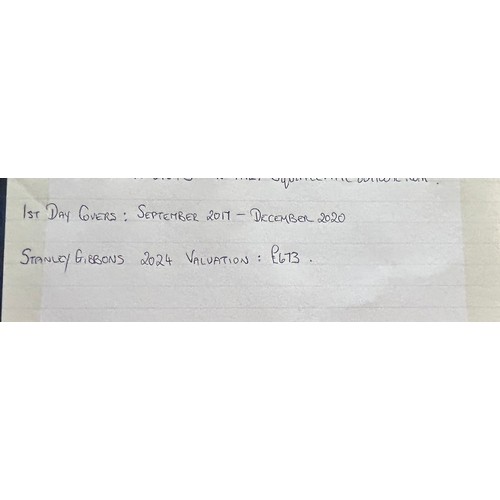 1st Day Covers: September 2017 – December 2020
Stanley Gibbons 2024 Valuation: £673.